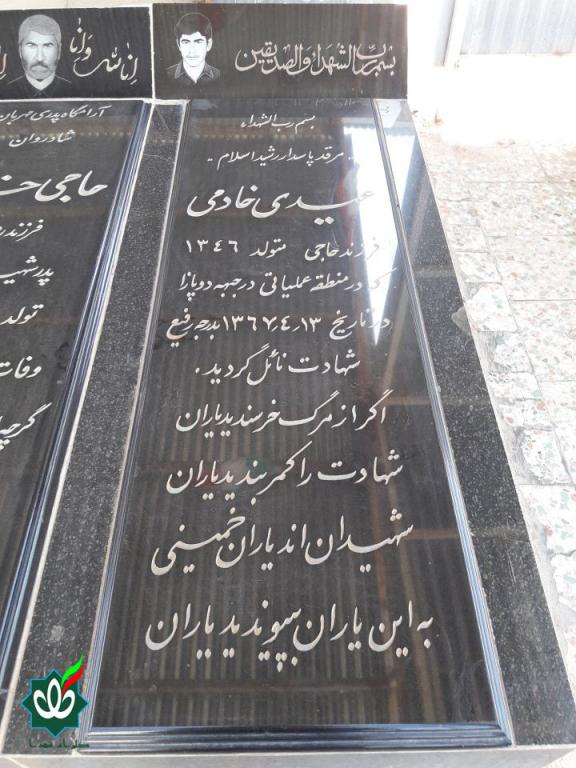 بسم رب الشهداء والصدیقین
بسم رب الشهداء
مرقد پاسدار رشید اسلام
عیدی خادمی
فرزند حاجی متولد ۱۳۴۶
که در منطقه عملیاتی در جبهه دوپازا
در تاریخ ۱۳۶۷٫۴٫۱۳ بدرجه رفیع
شهادت نائل گردید.
اگر از مرگ خرسندید یاران
شهادت را کمر بندید یاران
شهیدان اند یاران خمینی
به این یاران بپیوندید یاران
انا لله و انا
آرامگاه پدری مهربان
شادروان
حاجی
فرزند
پدر شهید
تولد
وفات
گرچه